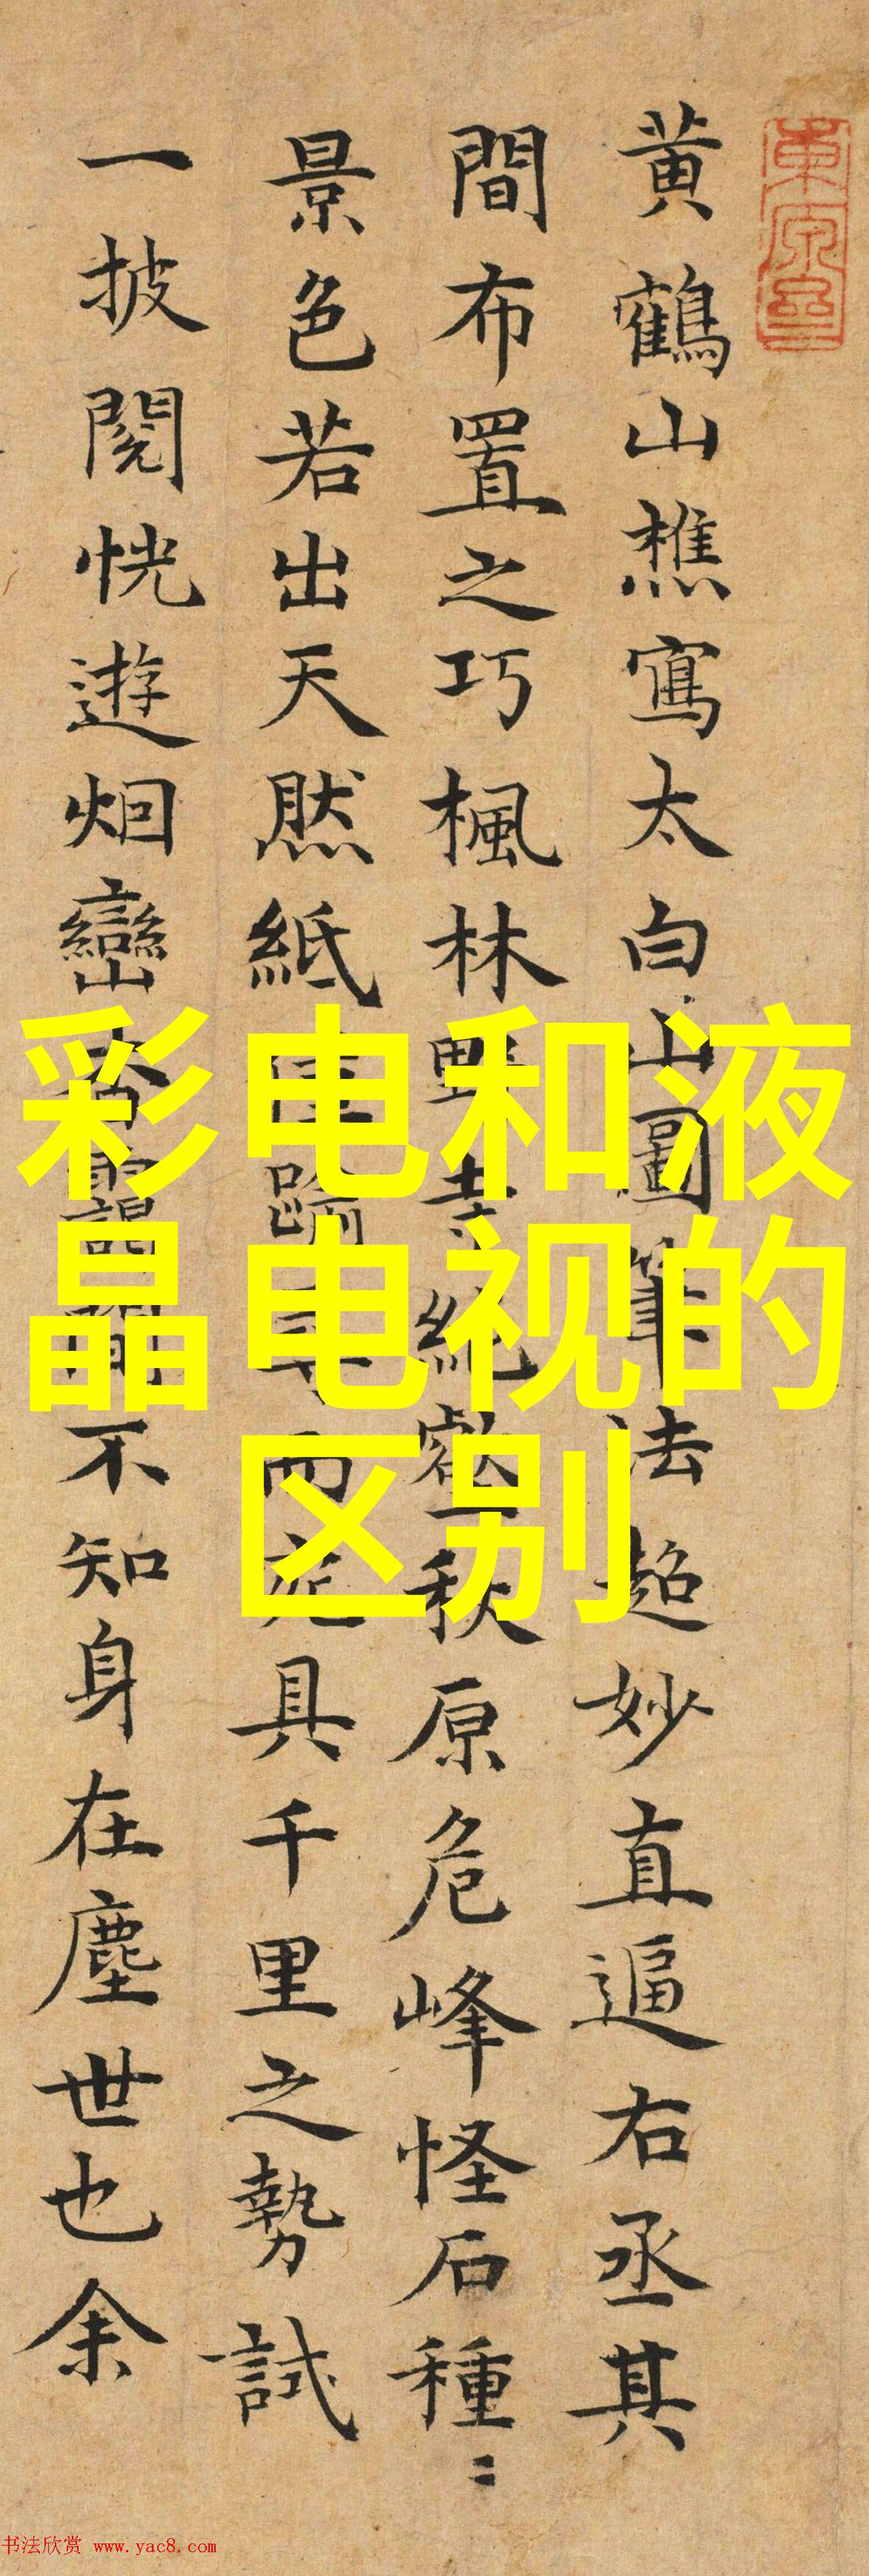 黄鶴山樵寫太白山圖筆法超妙直逼右丞其
間布置之巧楓林野寺絶壑秋原危峰怪石種〻
景色若出天然紙
而
具千里之勢試
一披閱恍遊烟巒
不知身在塵世也余
彩电和液
晶电视的
区别
书法欣赏 www.yac8.com